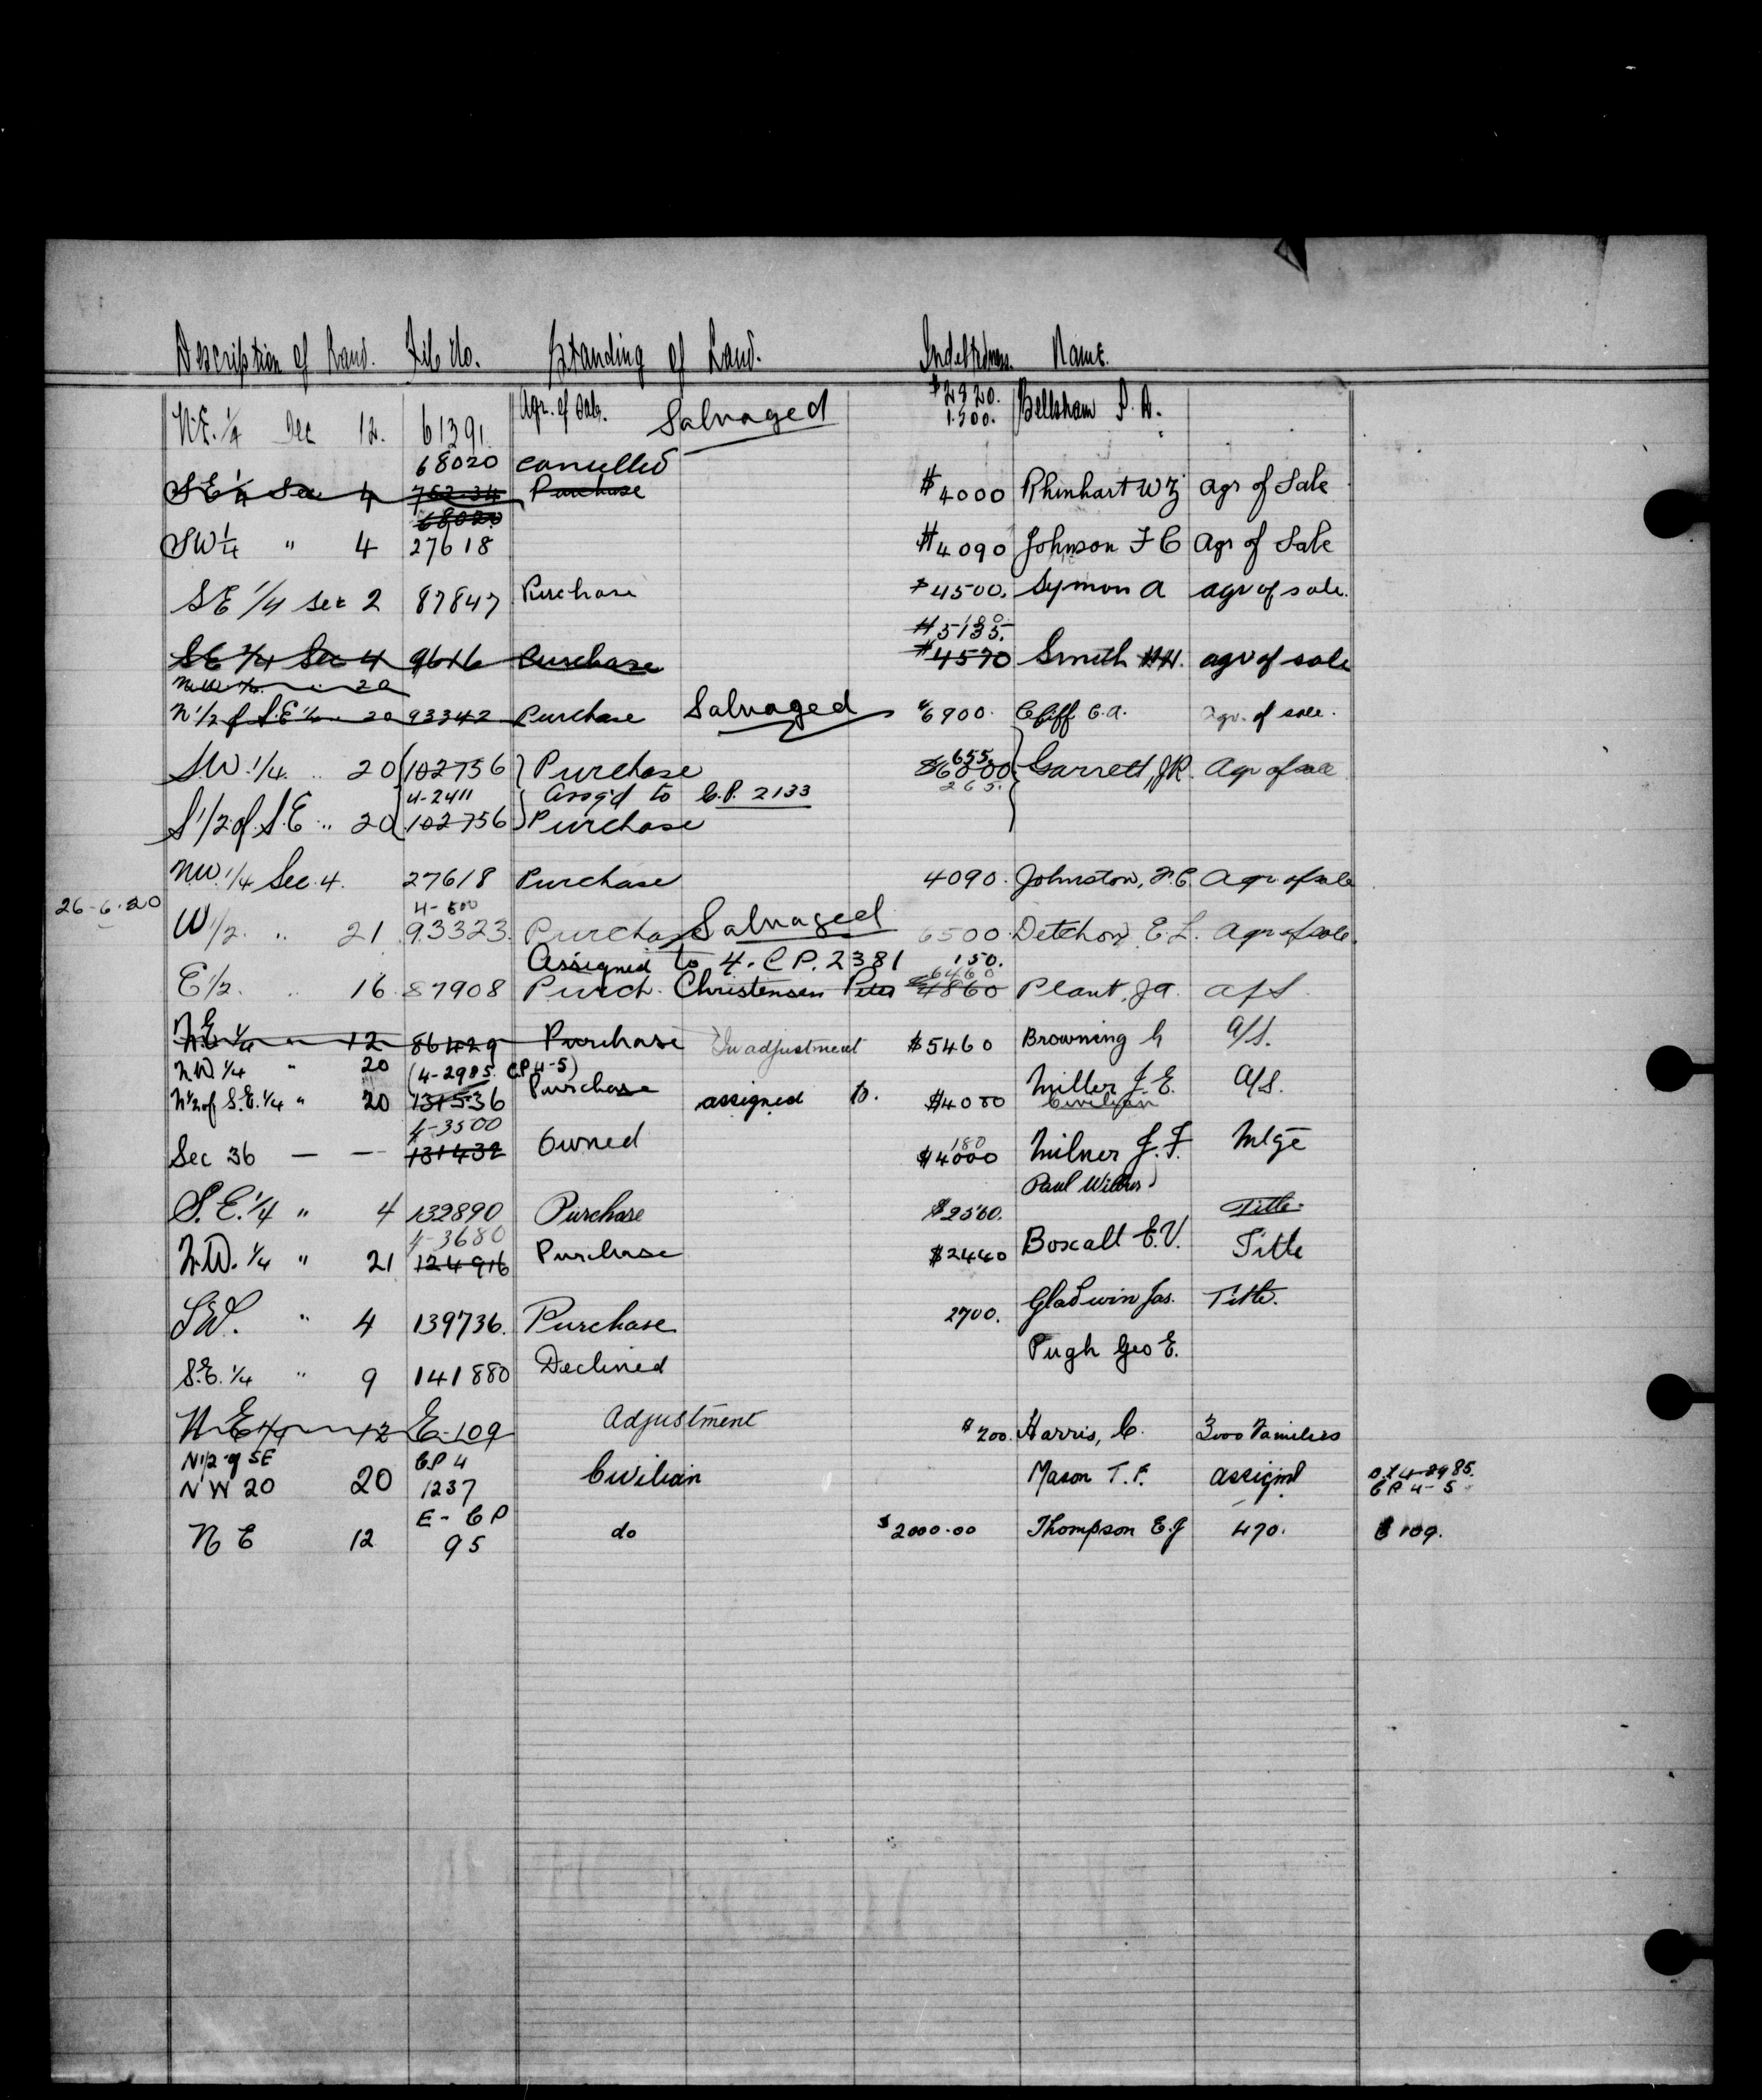 Description of Land. File No. Standing of Land. Indebtedness. Name.
$2920.
N.E. 1/4 Sec 12. 61391. Agr. of Sale. Salvaged 1.500. Bellsham
68020 cancelled
SE 1/4 Sec 4 76234 Purchase $4000 Rhinhart W Agr of Sale
68020
SW 1/4 " 4 27618 $4090 Johnson F C Agr of Sale
SE 1/4 Sec 2 87847 Purchase $4500. Symon A agr of sale.
5135.
SE 1/4 Sec 4 9616 Purchase $4570 Smith H.H. agr of sale
N.W. 1/4 .. 20
N 1/2 of S.E 1/4 .. 20 93342 Purchase Salvaged $6900. Cliff C.A. Agr. of sale.
655.
S.W. 1/4. .. 20 102756 Purchase $6000. Garrett, J.R. Agr of sale
4-2411 Assg'd to C.P. 2133 265.
S 1/2 of S.E .. 20 102756 Purchase
N.W. 1/4 Sec. 4. 27618 Purchase 4090. Johnston, F.C. Agr of sale
26-6-20 4-600
W 1/2. .. 21 93323. Purchase Salvaged 6500. Detchon E.L. Agr of sale.
Assigned to 4. C.P. 2381 150.
6460
E 1/2. .. 16. 87908 Purch. Christensen Peter 4860 Plant, J.A. a/s.
N.E. 1/4 " 12 86429 Purchase In adjustment $5460 Browning G a/s.
N.W 1/4 " 20 (4-2985. C.P. 4-5)
N 1/2 of S.E. 1/4 " 20 131536 Purchase assigned to. $4080 Miller J.E. a/s.
Civilian
4-3500
180
Sec 36 — — 131432 Owned $4000 Milner J.F. Mtge
Paul Wilbur
S.E. 1/4 " 4 132890 Purchase $2560. Title.
4-3680
N.W. 1/4 " 21 124916 Purchase $2440 Boxall E.V. Title
S.W. " 4 139736. Purchase 2700. Gladwin Jas. Title.
S.E. 1/4 " 9 141880 Declined Pugh Geo E.
N.E 1/4 12 E-109 Adjustment $200. Harris, C. 3000 Families
N 1/2 of SE CP 4
NW 20 20 1237 Civilian Mason T.F. assigned 4-2985.
CP 4-5
E-CP
N E 12 95 do $2000.00 Thompson E.J 470. E 109.